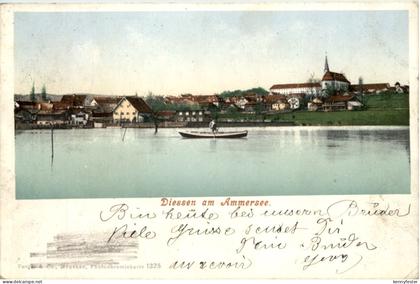 Diessen am Ammersee.
Bin heute bei unseren Brüder
Viele Grüsse sendet Dir
Dein Bruder
au revoir Georg
& Co., München, Photochromiekarte 1325